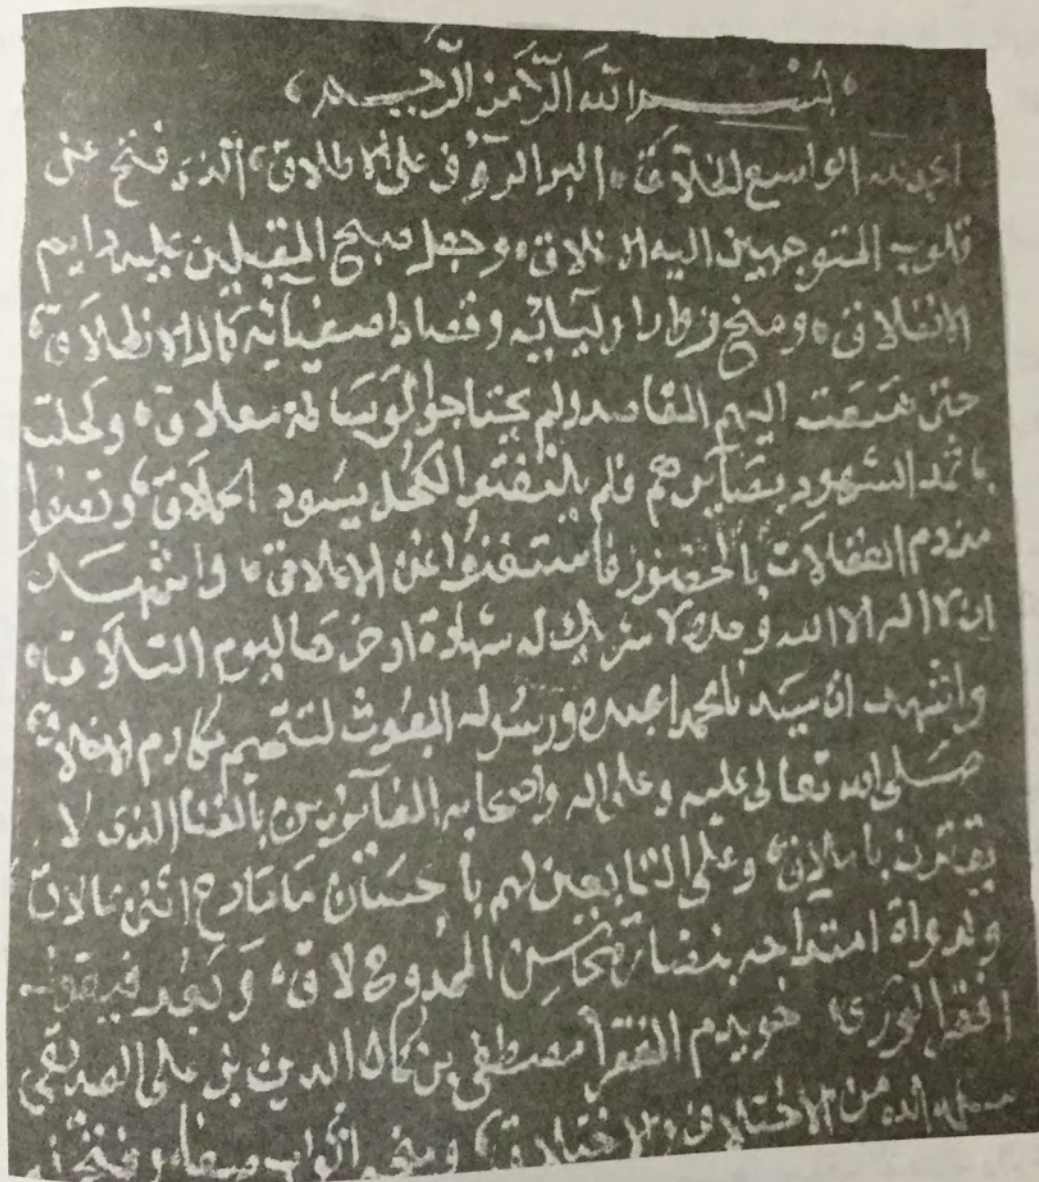 بسم الله الرحمن الرحيم
الحمد لله الواسع الخلاق، البر الرؤف على الاطلاق، الذى فتح عن
قلوب المتوجهين اليه الاغلاق، وجعل صبح المقبلين عليه دايم
الانفلاق، ومنح زوار اوليآئه وقصاد اصفيآئه كمال الانطلاق،
حتى همعت اليهم المقاصد ولم يحتاجوا لوسا معلاق، وكحلت
باثمد الشهود بصآئرهم فلم يلتفتوا لكحل يسود الحلاق،
من دم الغفلات بالحضور فاستغنوا عن الاعلاق، واشهد
ان لا اله الا الله وحده لا شريك له شهادة ادخرها ليوم التلاق،
واشهد ان سيدنا محمدا عبده ورسوله المبعوث لتتميم مكارم الاخلاق
صلى الله تعالى عليه وعلى اله واصحابه الفآئزين بالغنا الذى لا
يقترن باملاق، وعلى التابعين لهم باحسان ما مادح اثنى
امتداحه محاسن الممدوح لاق، وبعد فيقول
افقر الورى، خويدم الفقرا مصطفى بن كمال الدين بن على الصديقى
من الاختلاف والاختلاق، ومنحه اثواب صفا